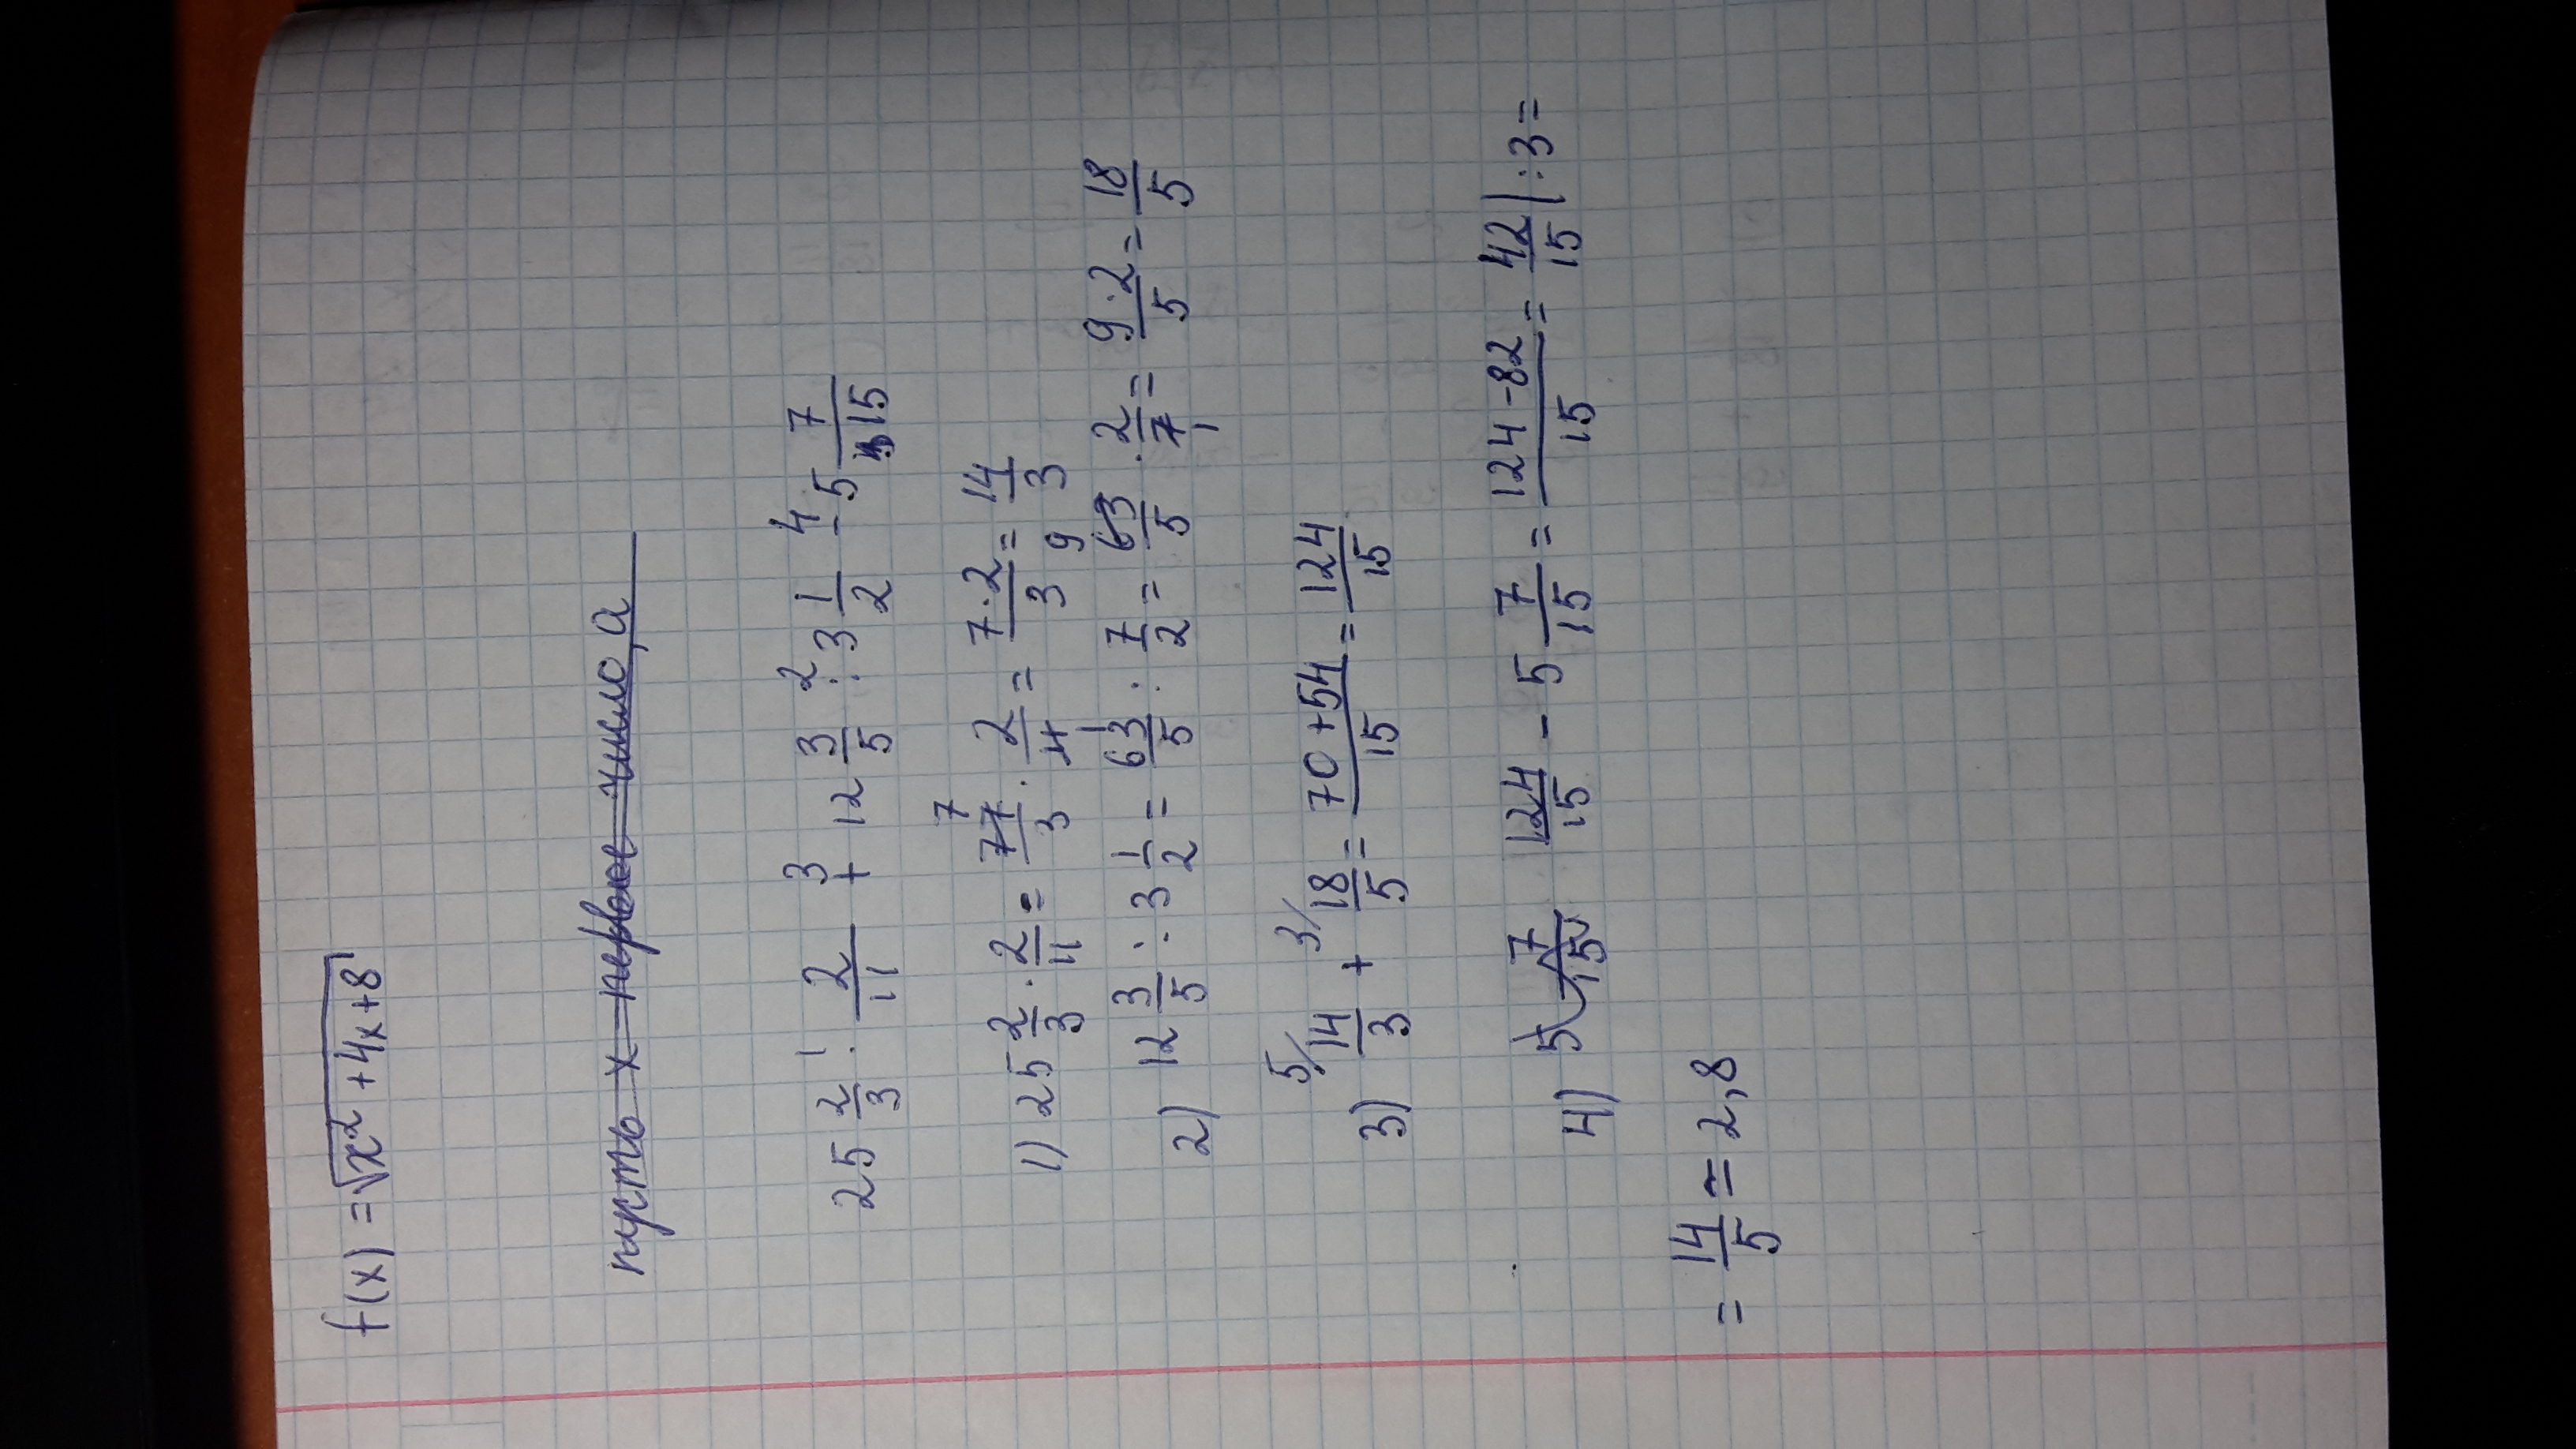 f(x) = √(x² + 4x + 8)
пусть х первое число, а
25 2/3 · 2/11 + 12 3/5 : 3 1/2 - 5 7/15
1 3 2 4
1) 25 2/3 · 2/11 = 77/3 · 2/11 = 7·2/3 = 14/3
2) 12 3/5 : 3 1/2 = 63/5 : 7/2 = 63/5 · 2/7 = 9·2/5 = 18/5
3) 14/3 + 18/5 = 70+54/15 = 124/15
4) 5 7/15 124/15 - 5 7/15 = 124-82/15 = 42/15 | :3 =
= 14/5 = 2,8